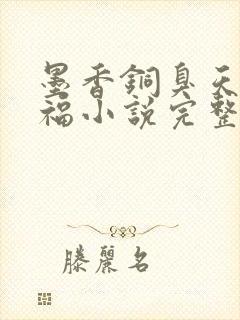 墨香銅臭天
福小說完整
滕麗名